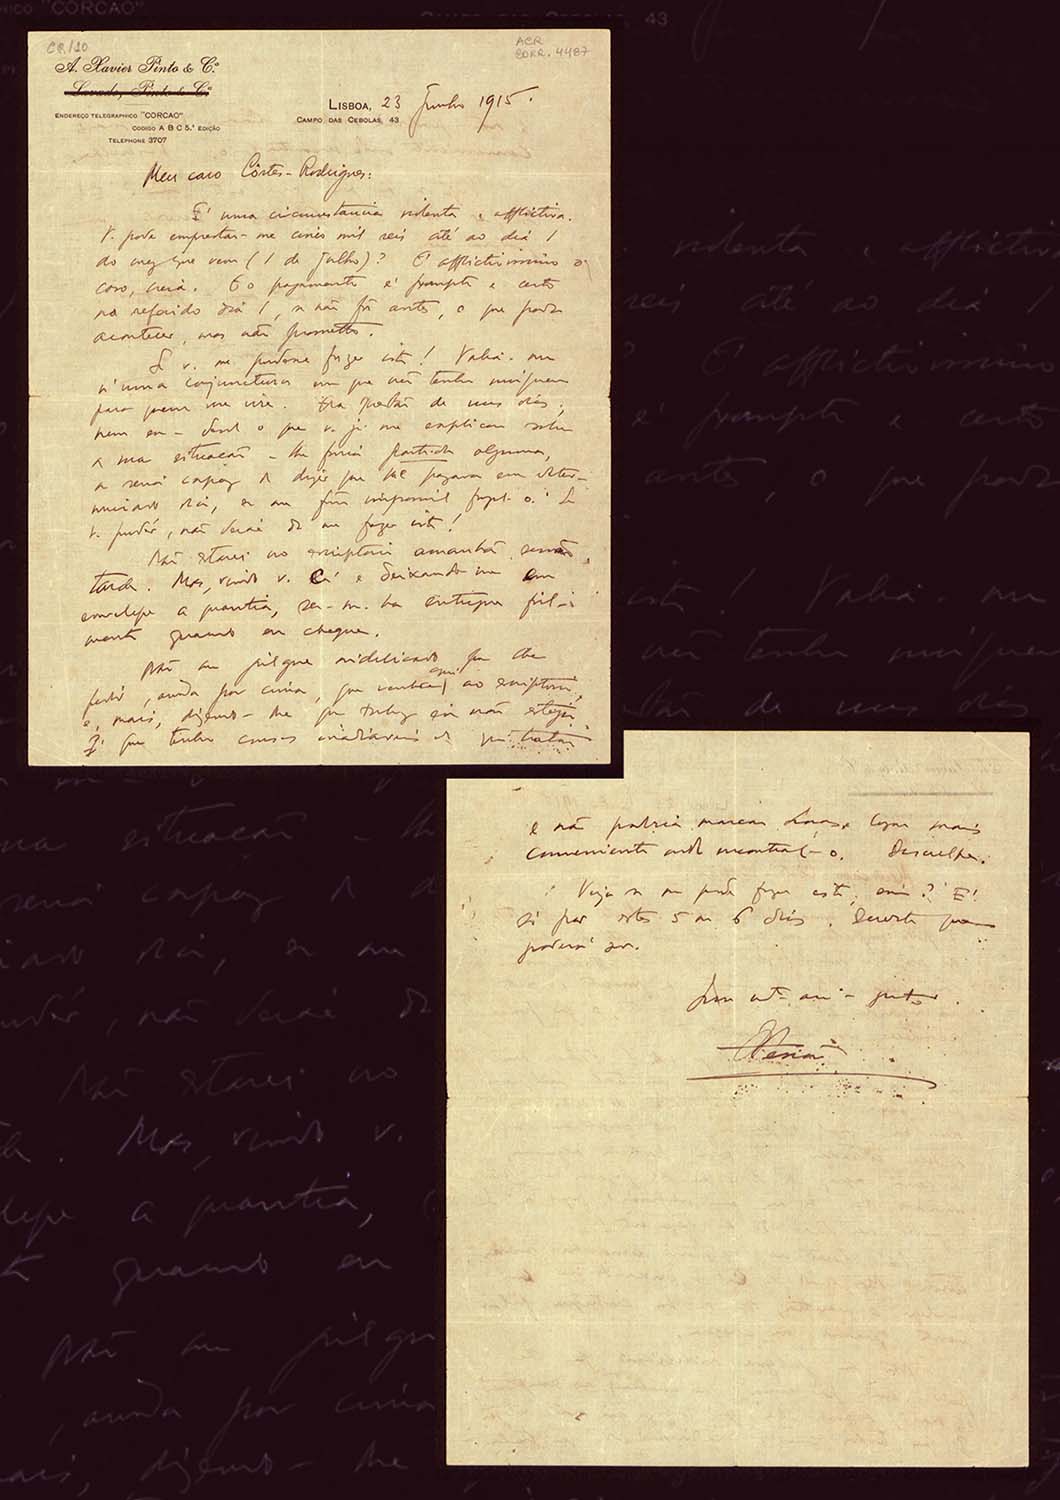 CR/10
ACR
CORR. 4487
A. Xavier Pinto & C.ª
Lavado, Pinto & C.ª
ENDEREÇO TELEGRAPHICO "CORCAO"
CODIGO A B C 5.ª EDIÇÃO
TELEPHONE 3707
LISBOA, 23 Junho 1915.
CAMPO DAS CEBOLAS, 43
Meu caro Côrtes-Rodrigues:
É uma circumstancia violenta e afflictiva.
V. pode emprestar-me cinco mil reis até ao dia 1
do mez que vem (1 de Julho)? É afflictivissimo o
caso, creia. E o pagamento é prompto e certo
no referido dia 1, se não fôr antes, o que pode
acontecer, mas não prometto.
Se v. me pudesse fazer isto! Valia-me
n'uma conjunctura em que não tenho ninguem
para quem me vire. Era questão de uns dias;
nem eu — dado o que v. já me explicou sobre
a sua situação — lhe faria partida alguma,
ou seria capaz de dizer que lhe pagava em deter-
minado dia, se me fôsse impossivel fazel-o. Se
v. pudér, não deixe de me fazer isto!
Não estarei no escriptorio amanhã senão
tarde. Mas, vindo v. cá e deixando-me em
enveloppe a quantia, ser-me-ha entregue fiel-
mente quando eu chegue.
Não me julgue indelicado por lhe
pedir, ainda por cima, que venha aqui ao escriptorio,
e, mais, dizendo-lhe que talvez eu não esteja.
É que tenho cousas inadiaveis de que tratar
e não poderia marcar horas e logar mais
conveniente onde encontral-o. Desculpe.
Veja se me pode fazer isto, sim? É
só por estes 5 ou 6 dias.
poderá ser.
Seu mt. am.º e grato